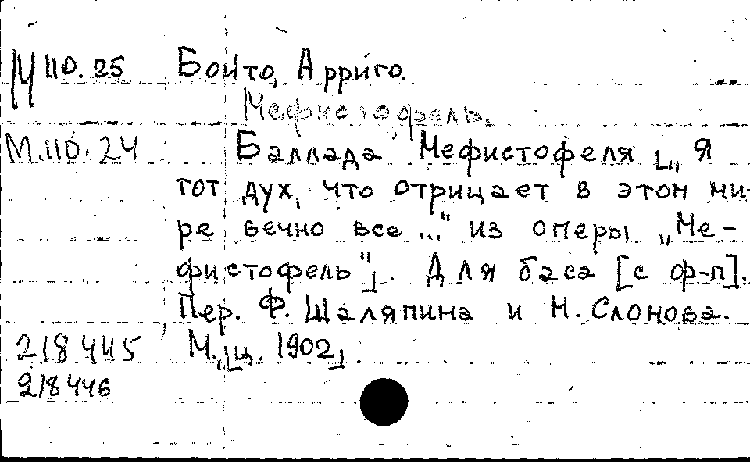 М 110.25 Бойто, Арриго.
Мефистофель.
М.110.24 Баллада Мефистофеля [„Я
тот дух, что отрицает в этом ми-
ре вечно все..." из оперы „Ме-
фистофель"]. Для баса [с ф-п].
Пер. Ф. Шаляпина и Н. Слонова.
218445 М., ц. 1902].
218446